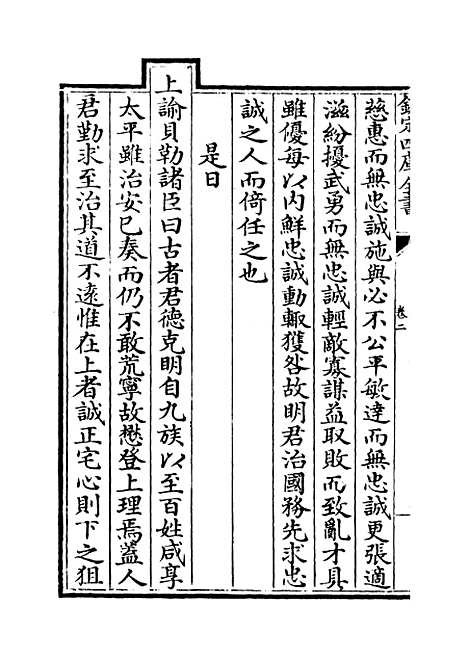 欽定四庫全書
卷二
慈惠而無忠誠施與必不公平敏達而無忠誠更張適
滋紛擾武勇而無忠誠輕敵寡謀益取敗而致亂才具
雖優每以内鮮忠誠動輙獲咎故明君治國務先求忠
誠之人而倚任之也
是日
上諭貝勒諸臣曰古者君德克明自九族以至百姓咸享
太平雖治安已奏而仍不敢荒寧故懋登上理焉蓋人
君勤求至治其道不逺惟在上者誠正宅心則下之狙